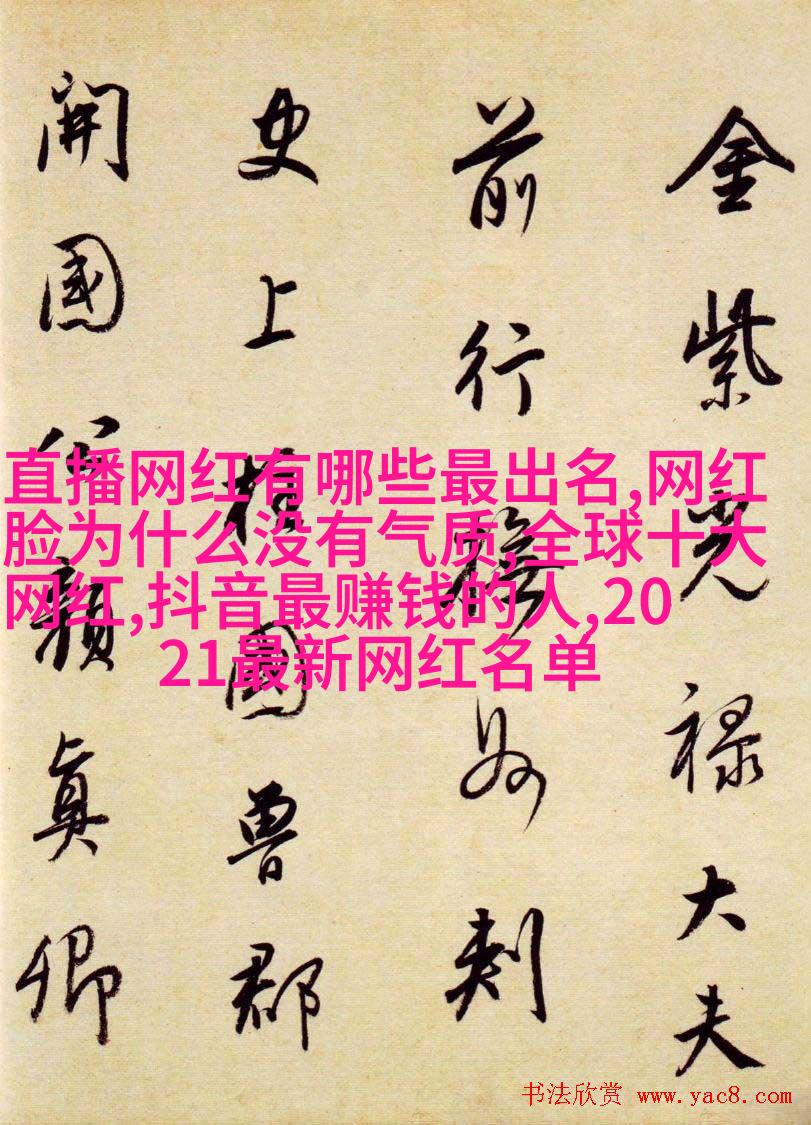 金紫光禄大夫
前行撫州刺
史上柱國魯郡
開國公顏眞卿
直播网红有哪些最出名,网红
脸为什么没有气质,全球十大
网红,抖音最赚钱的人,20
21最新网红名单
书法欣赏 www.yac8.com